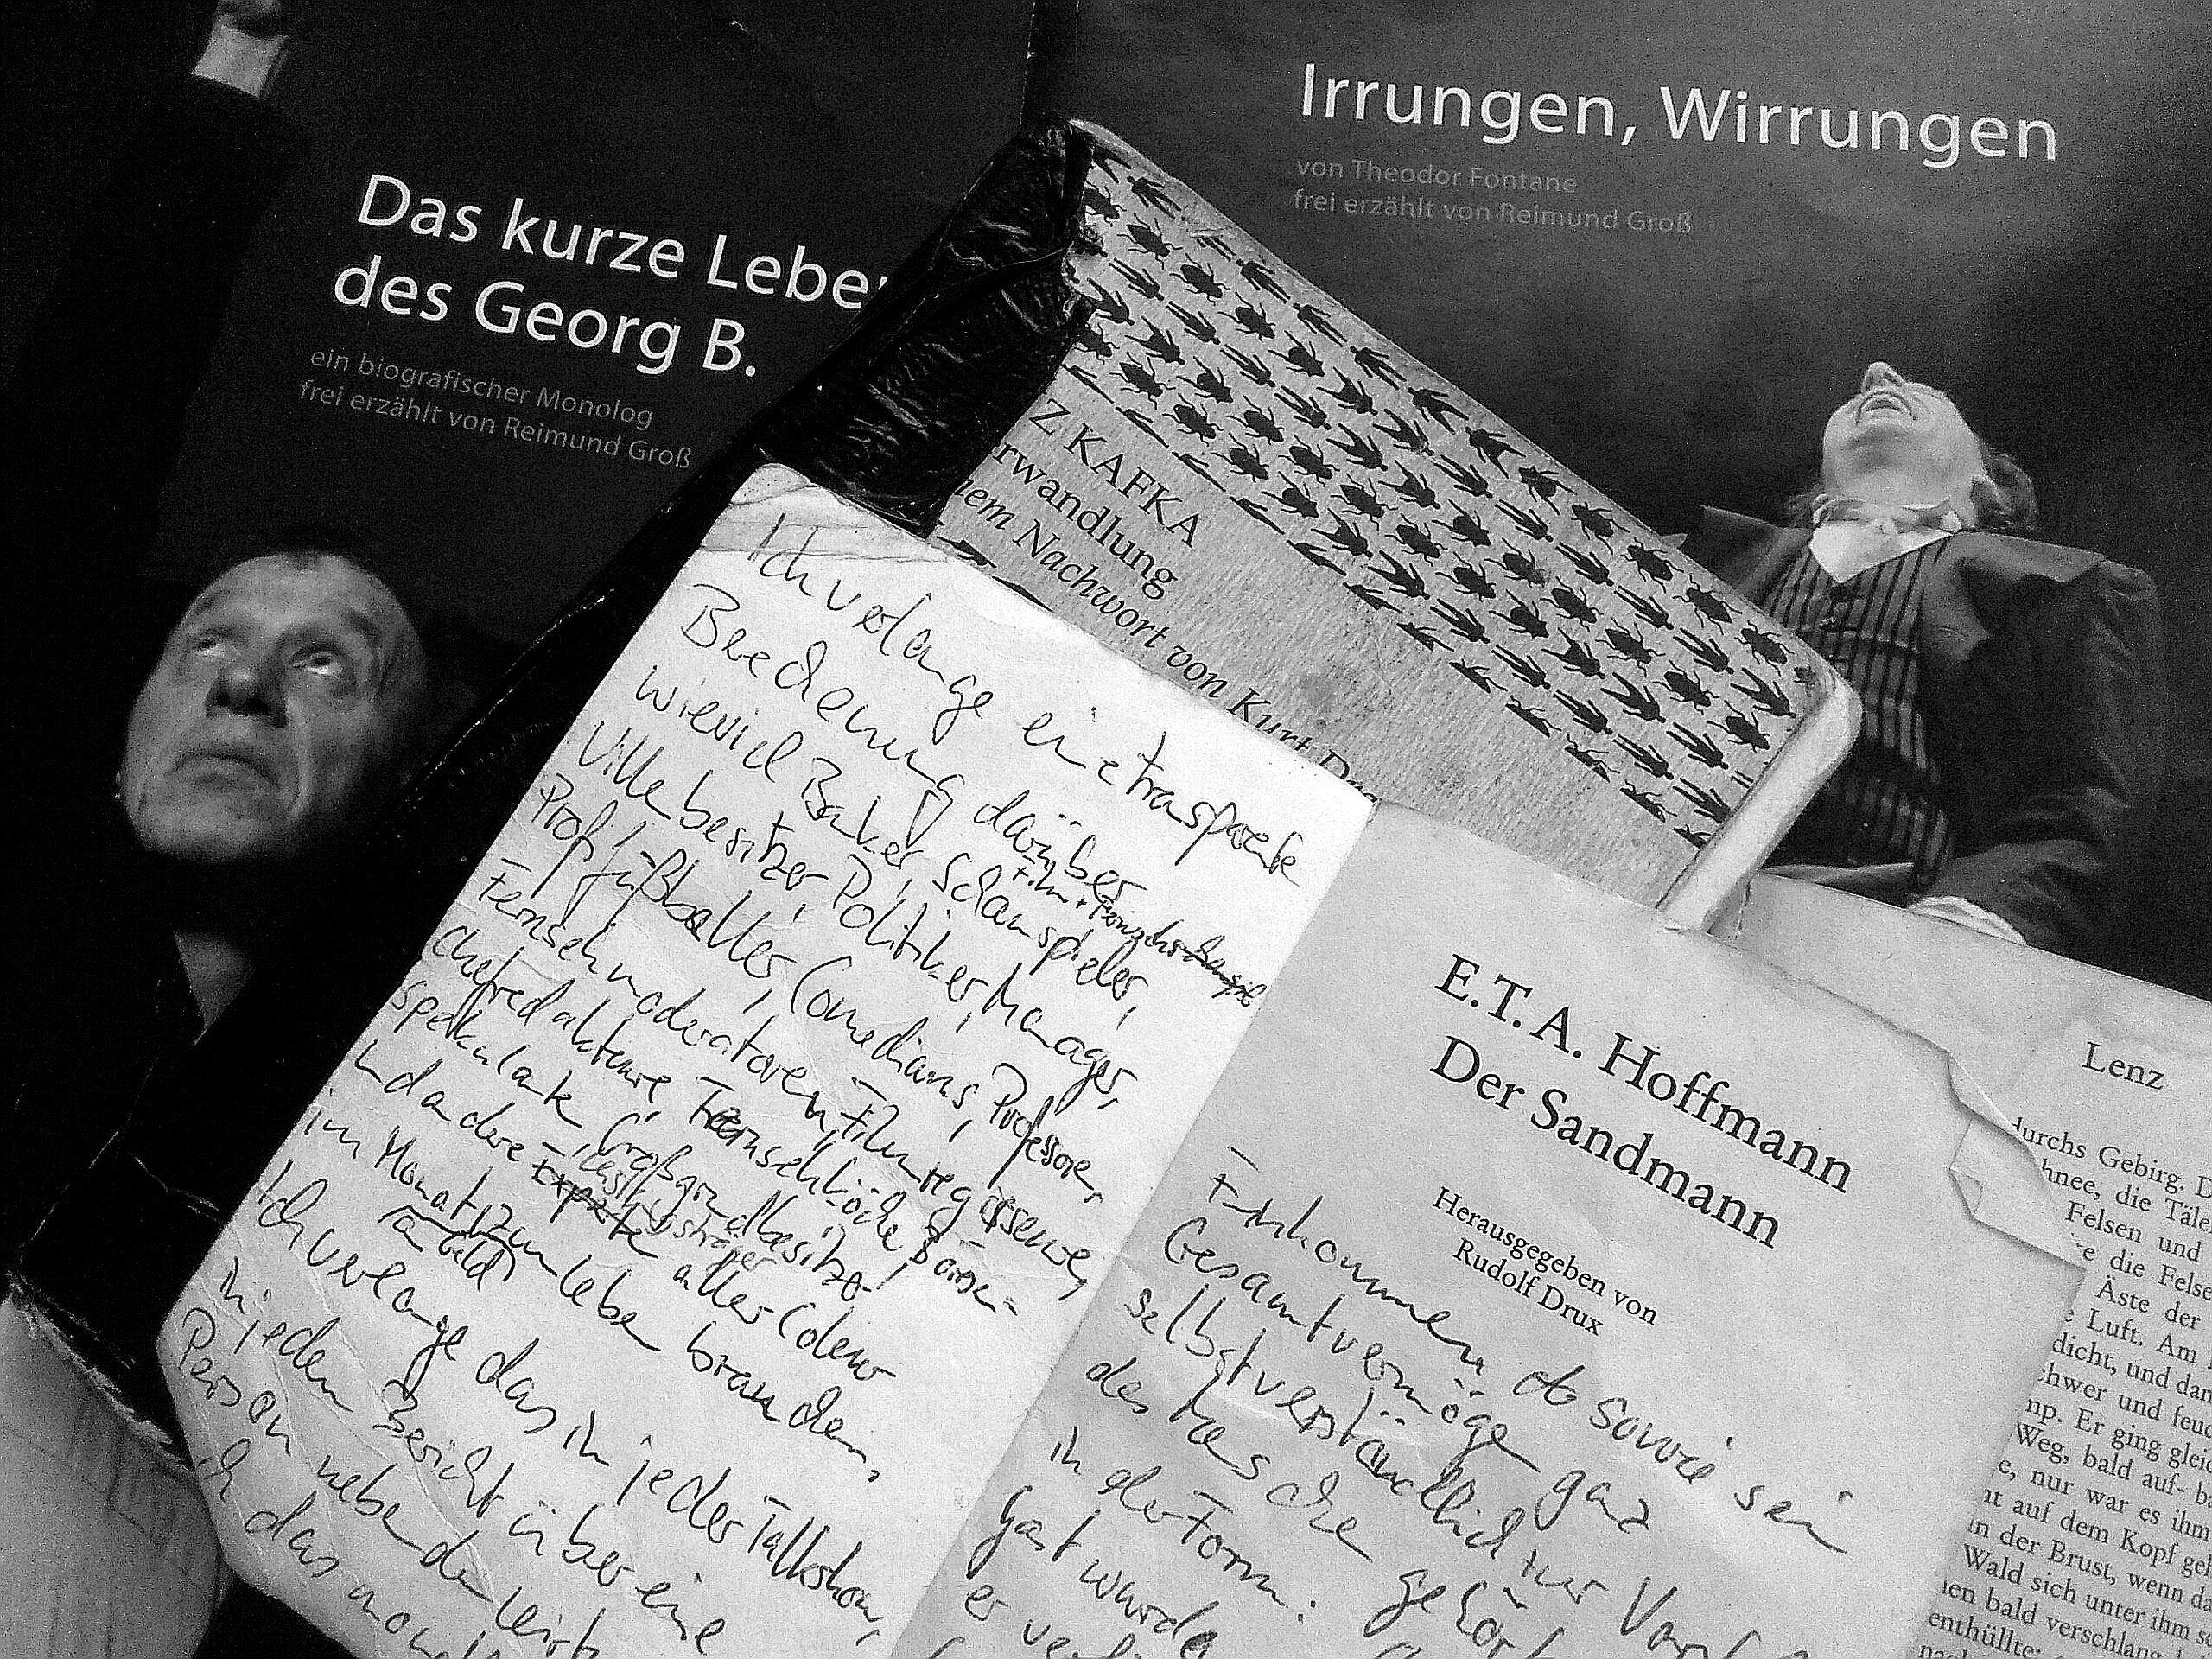 Das kurze Leben
des Georg B.
ein biografischer Monolog
frei erzählt von Reimund Groß
Irrungen, Wirrungen
von Theodor Fontane
frei erzählt von Reimund Groß
Z KAFKA
rwandlung
nem Nachwort von Kurt
Ich verlange eine transparente
Berechnung darüber
wieviel Banker, Schauspieler,
Film + Fernseh
Villenbesitzer, Politiker, Manager,
Profifußballer, Comedians, Professoren,
Fernsehmoderatoren, Filmregisseure,
Chefredakteure, Fernsehköche, Börsen-
spekulanten, Großgrundbesitzer
und andere aller Couleur
im Monat zum leben brauchen.
(a Geld)
Ich verlange das in jeder Talkshow,
in jedem Bericht über eine
Person neben der
ich das
E.T.A. Hoffmann
Der Sandmann
Herausgegeben von
Rudolf Drux
Einkommen sowie sein
Gesamtvermögen ganz
selbstverständlich zur
des gehört
in der Form:
Gast wurde
er
Lenz
durchs Gebirg. D
hnee, die Täle
Felsen und
e die Felse
Äste der
Luft. Am
dicht, und dan
chwer und feuc
mp. Er ging gleic
Weg, bald auf- ba
e, nur war es ihm
nt auf dem Kopf geh
in der Brust, wenn da
Wald sich unter ihm sc
nen bald verschlang
enthüllte;